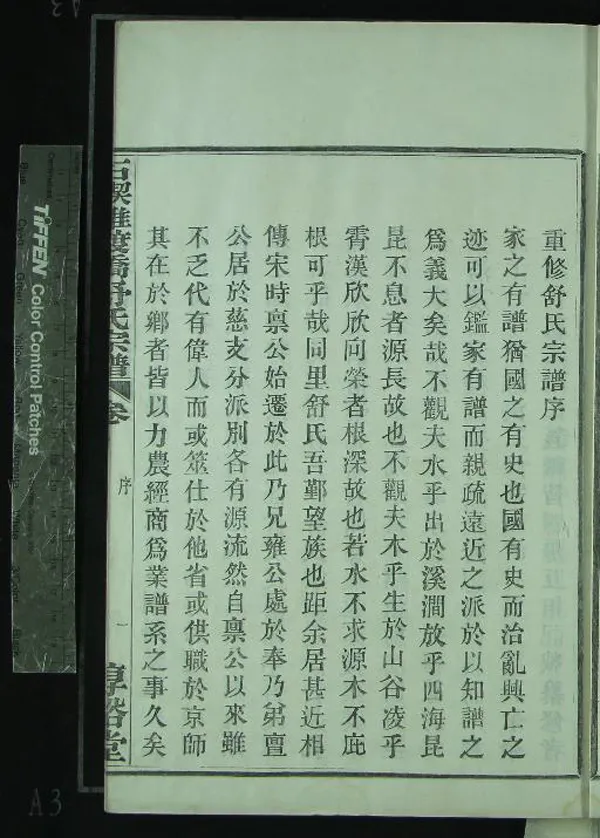 重修舒氏宗譜序
家之有譜猶國之有史也國有史而治亂興亡之
迹可以鑑家有譜而親疏遠近之派於以知譜之
爲義大矣哉不觀夫水乎出於溪澗放乎四海昆
昆不息者源長故也不觀夫木乎生於山谷凌乎
霄漢欣欣向榮者根深故也若水不求源木不庇
根可乎哉同里舒氏吾鄞望族也距余居甚近相
傳宋時禀公始遷於此乃兄雍公處於奉乃弟亶
公居於慈支分派別各有源流然自禀公以來雖
不乏代有偉人而或筮仕於他省或供職於京師
其在於鄉者皆以力農經商爲業譜系之事久矣
石碶
橋舒氏宗譜
卷
序
一
堂
TIFFEN Color Control Patches
A3